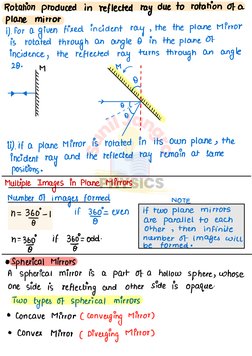 Rotation produced in reflected ray due to rotation of a
plane mirror
i). For a given fixed incident ray, the the plane Mirror
is rotated through an angle θ in the plane of
incidence, the reflected ray turns through an angle
2θ.
M
M
θ
θ
θ
ii). If a plane Mirror is rotated in its own plane, the
incident ray and the reflected ray remain at same
positions.
Multiple Images in Plane Mirrors
Number of images formed
n = 360°/θ - 1 if 360°/θ = even
n = 360°/θ if 360°/θ = odd.
NOTE
if two plane mirrors
are parallel to each
other, then infinite
number of images will
be formed.
PHYSICS
• Spherical Mirrors
A spherical mirror is a part of a hollow sphere, whose
one side is reflecting and other side is opaque
Two types of spherical mirrors
• Concave Mirror (Converging Mirror)
• Convex Mirror (Diverging Mirror)